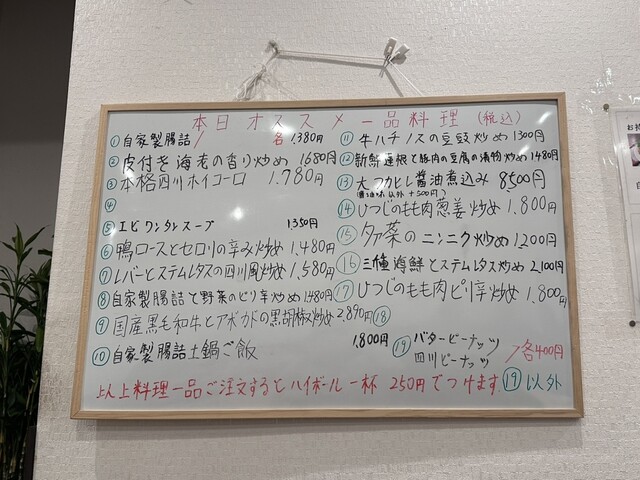 本日オススメ一品料理 (税込)
① 自家製腸詰 各 1,380円
② 皮付き海老の香り炒め 1680円
③ 本格四川ホイコーロ 1,780円
④
⑤ エビワンタンスープ 1,350円
⑥ 鴨ロースとセロリの辛み炒め 1,480円
⑦ レバーとステムレタスの四川風炒め 1,580円
⑧ 自家製腸詰と野菜のピリ辛炒め 1480円
⑨ 国産黒毛和牛とアボカドの黒胡椒炒め 2,890円
⑩ 自家製腸詰土鍋ご飯 1,800円
⑪ 牛ハチノスの豆豉炒め 1300円
⑫ 新鮮蓮根と豚肉の豆腐の漬物炒め 1480円
⑬ 大フカヒレ醤油煮込み 8,500円
(醤油味以外+500円)
⑭ ひつじのもも肉葱姜炒め 1,800円
⑮ タアサイ菜のニンニク炒め 1200円
⑯ 三種海鮮とステムレタス炒め 2,100円
⑰ ひつじのもも肉ピリ辛炒め 1,800円
⑱
⑲ バターピーナッツ
四川ピーナッツ 各400円
以上料理一品ご注文するとハイボール一杯 250円でつけます ⑲以外